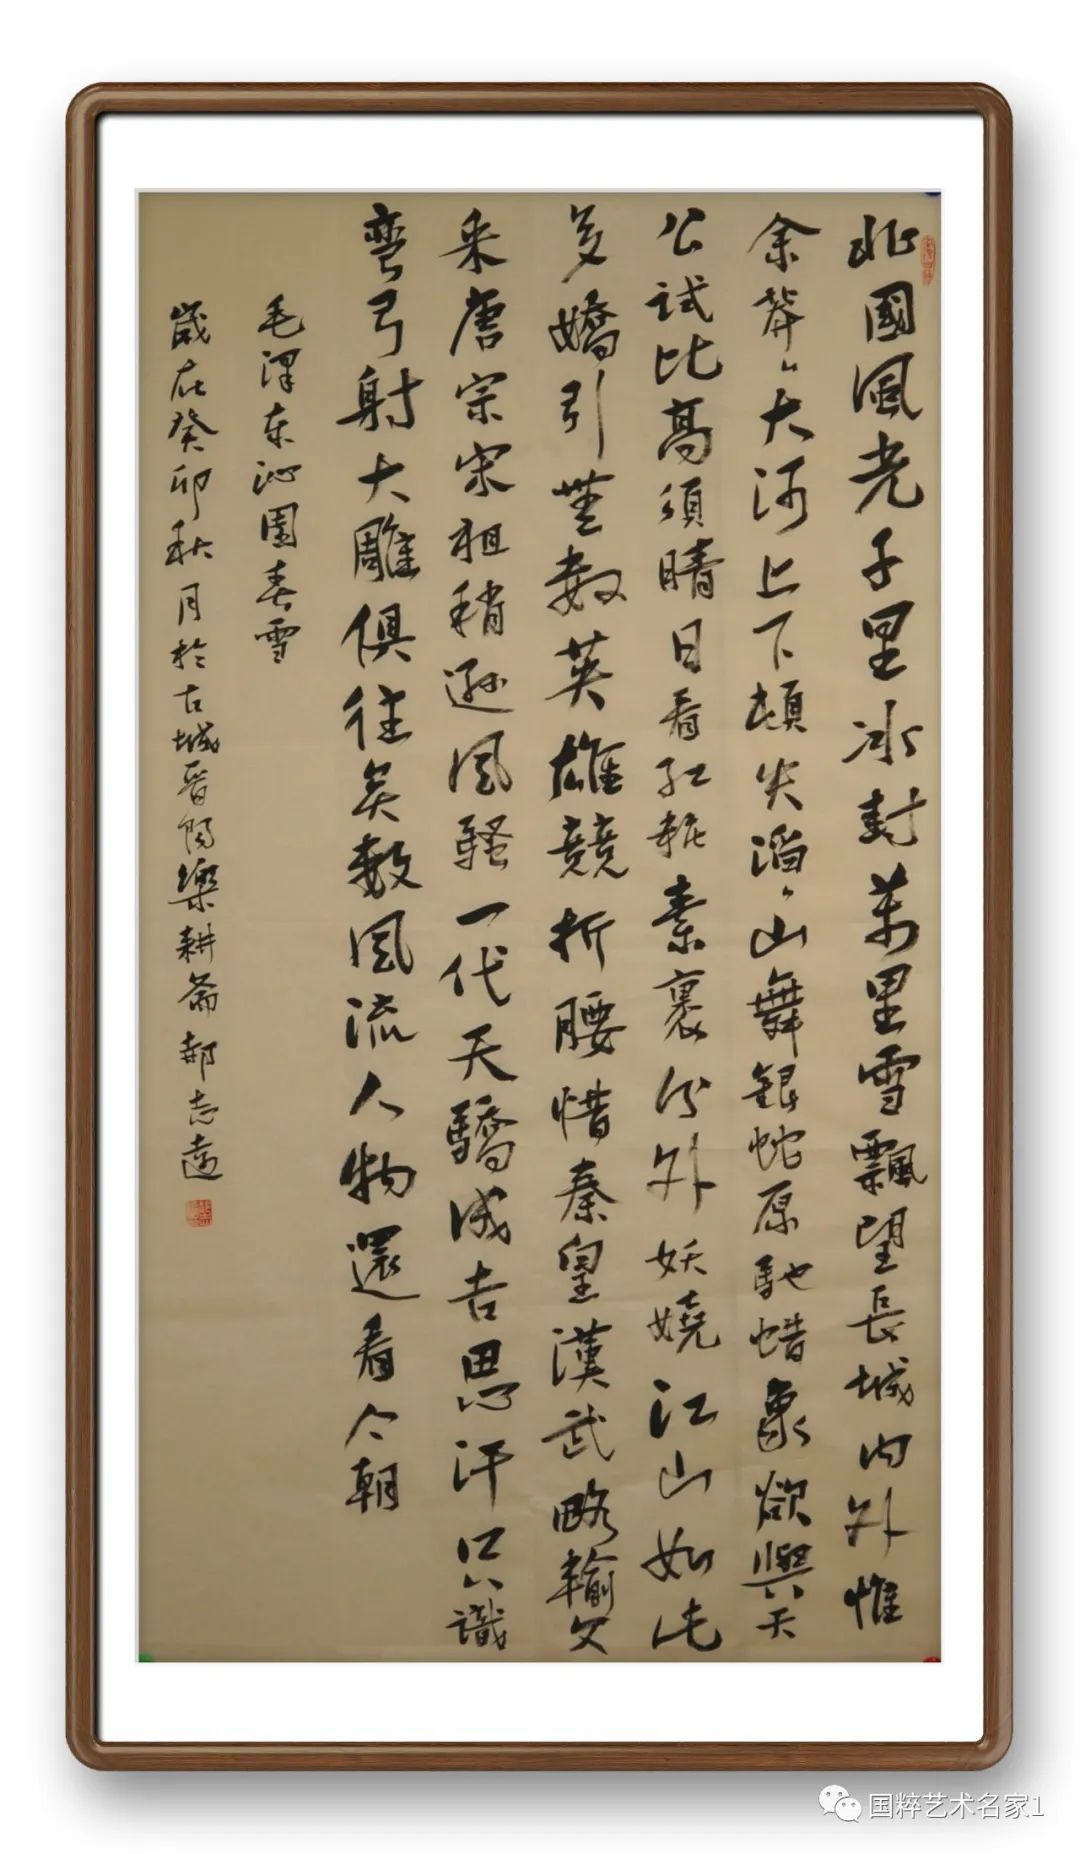 北國風光千里冰封萬里雪飄望長城內外惟
余莽々大河上下頓失滔々山舞銀蛇原馳蜡象欲與天
公試比高須晴日看紅粧素裹分外妖嬈江山如此
多嬌引無數英雄競折腰惜秦皇漢武略輸文
采唐宗宋祖稍遜風騷一代天驕成吉思汗只識
彎弓射大雕俱往矣數風流人物還看今朝
毛澤东沁園春雪
歲在癸卯秋月於古城晉陽樂耕斋郝志远
国粹艺术名家1